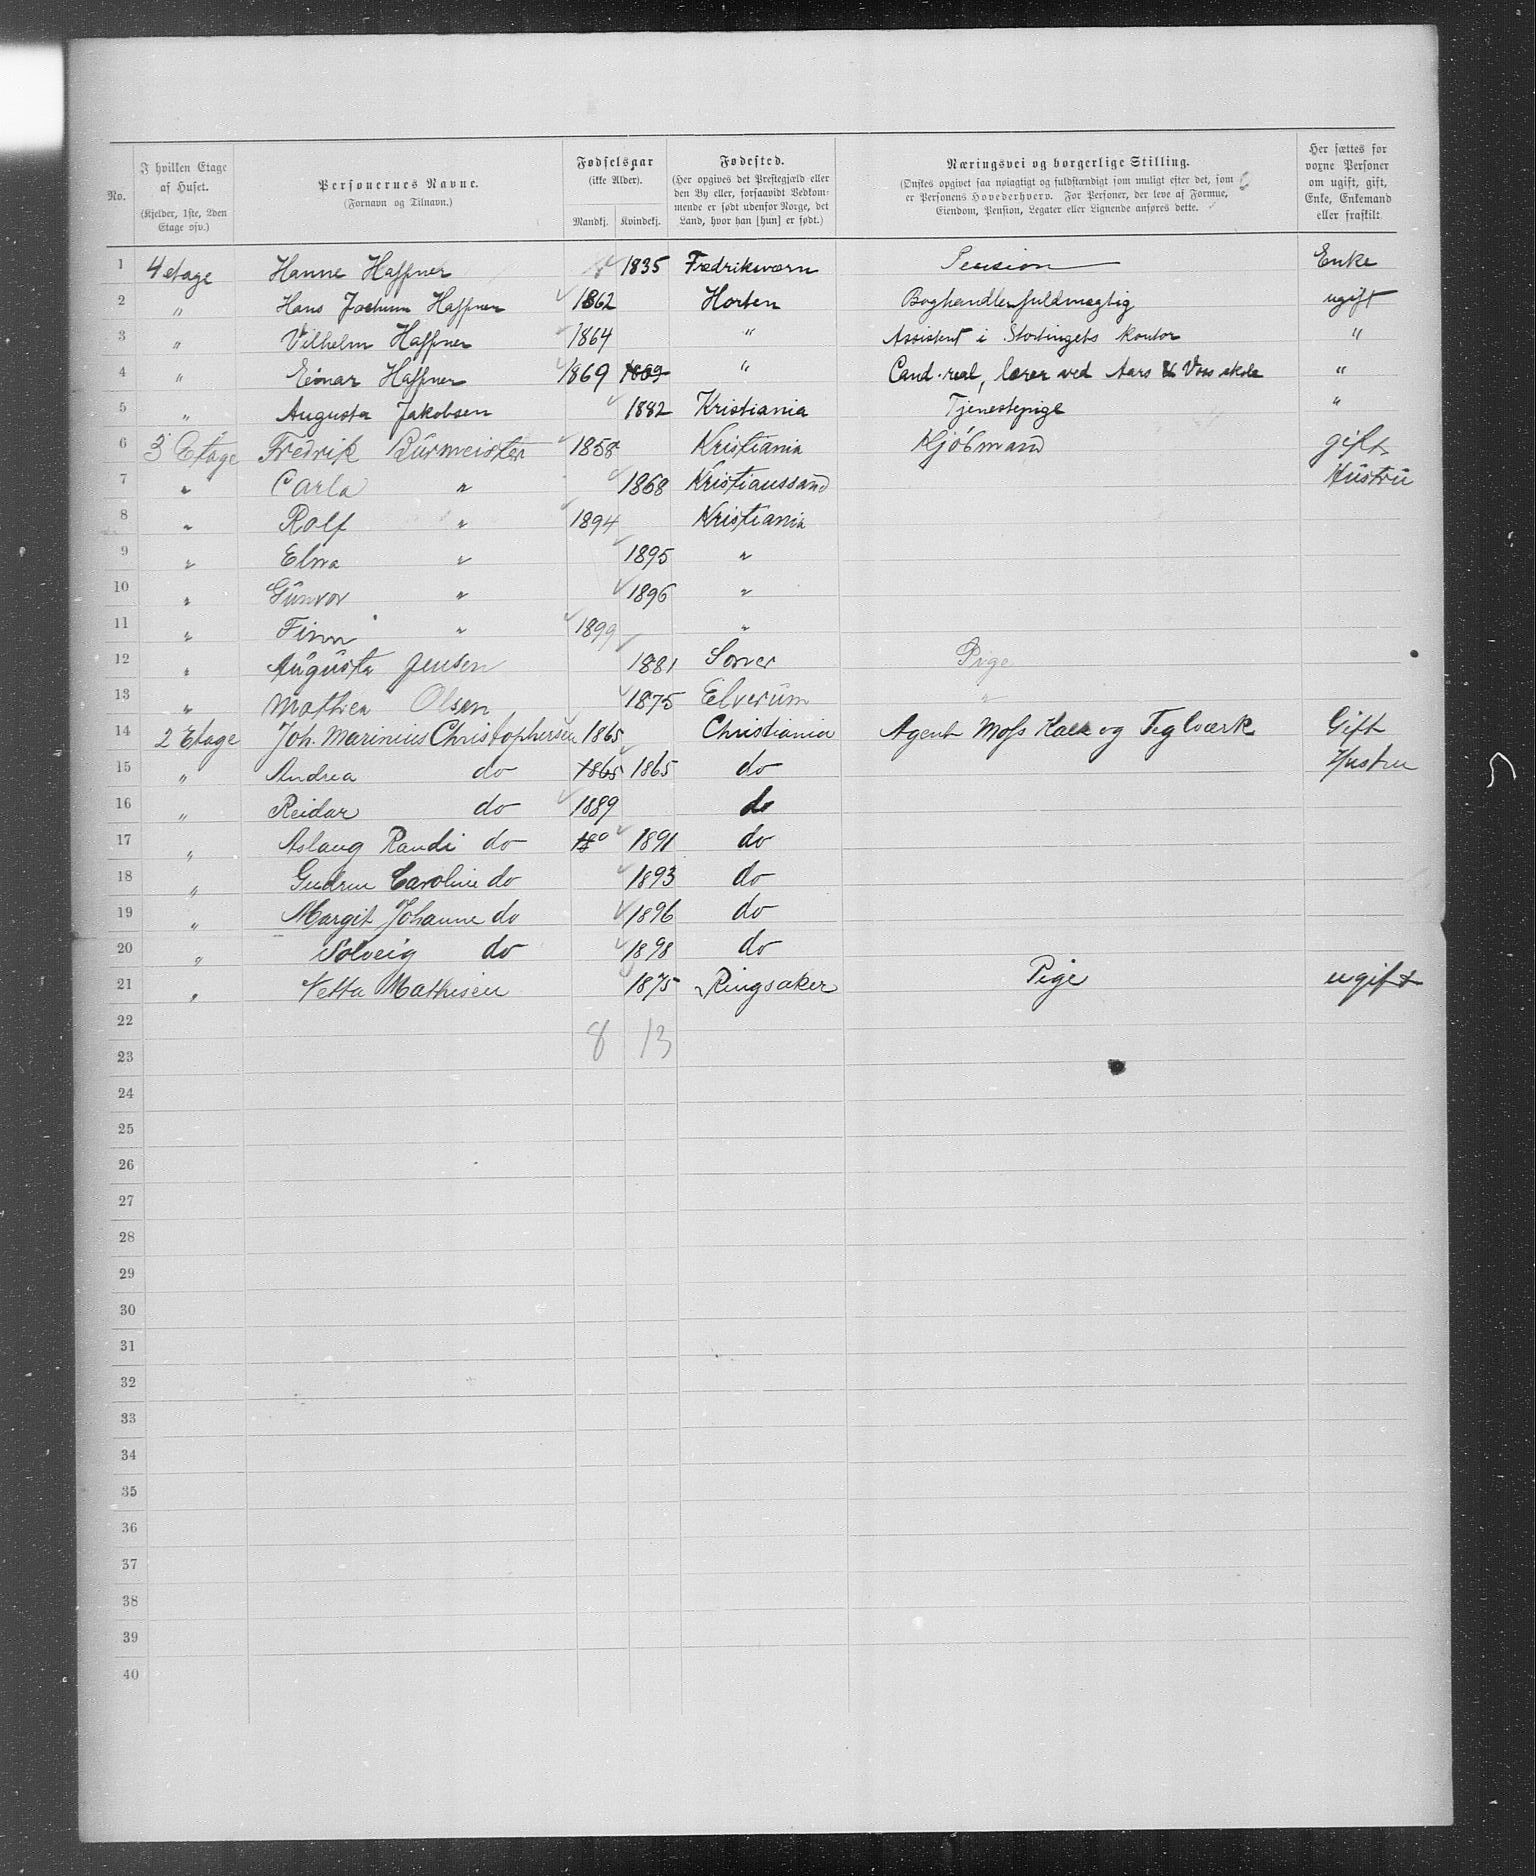 No. | I hvilken Etage af Huset. (Kjelder, 1ste, 2den Etage osv.) | Personernes Navne. (Fornavn og Tilnavn.) | Fødselsaar (ikke Alder). Mandkj. | Kvindekj. | Fødested. (Her opgives det Prestegjæld eller den By eller, forsaavidt Vedkommende er født udenfor Norge, det Land, hvor han [hun] er født.) | Næringsvei og borgerlige Stilling. (Ønskes opgivet saa nøiagtigt og fuldstændigt som muligt efter det, som er Personens Hovederhverv. For Personer, der leve af Formue, Eiendom, Pension, Legater eller Lignende anføres dette. | Her sættes for voxne Personer om ugift, gift, Enke, Enkemand eller fraskilt
1 4 etage Hanne Haffner 1835 Fredriksværn Pension Enke
2 " Hans Jochum Haffner 1862 Horten Boghandlerfuldmægtig ugift
3 " Vilhelm Haffner 1864 " Assistent i Stortingets kontor "
4 " Einar Haffner 1869 1869 " Cand. real, lærer ved Aars & Voss skole "
5 " Augusta Jakobsen 1882 Kristiania Tjenestepige "
6 3 Etage Fredrik Burmeister 1858 Kristiania Kjöbmand gift
7 " Carla " 1868 Kristianssand Hustru
8 " Rolf " 1894 Kristiania
9 " Elna " 1895 "
10 " Gunvor " 1896 "
11 " Finn " 1899 "
12 " Augusta Jensen 1881 Pige
13 " Mathea Olsen 1875 Elverum "
14 2 Etage Joh. Marinius Christophersen 1865 Christiania Agent Moss Kalk og Teglværk Gift
15 " Andrea do 1865 1865 do Hustru
16 " Reidar do 1889 do
17 " Aslaug Randi do 1891 do
18 " Gudrun Caroline do 1893 do
19 " Margit Johanne do 1896 do
20 " Solveig do 1898 do
21 " Netta Mathisen 1875 Ringsaker Pige ugift
22 8 13
23
24
25
26
27
28
29
30
31
32
33
34
35
36
37
38
39
40